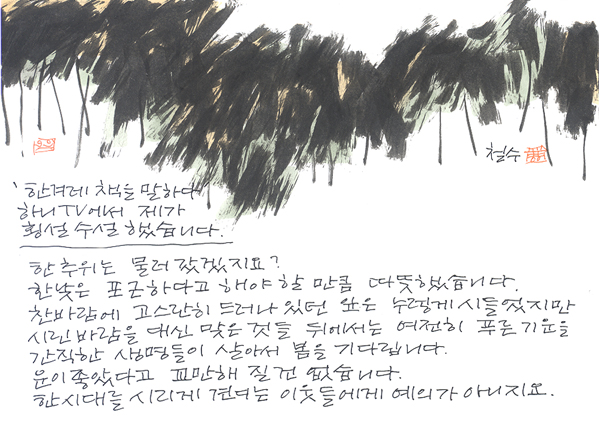 철수
'한겨레 책을 말하다'
하니TV에서 제가
횡설수설했습니다.
한추위는 물러갔겠지요?
한낮은 포근하다고 해야 할 만큼 따뜻했습니다.
찬바람에 고스란히 드러나 있던 잎은 누렇게 시들었지만
시린 바람을 대신 맞은 것들 뒤에서는 여전히 푸른 기운을
간직한 생명들이 살아서 봄을 기다립니다.
운이 좋았다고 교만해 질 건 없습니다.
한시대를 시리게 견디는 이웃들에게 예의가 아니지요.